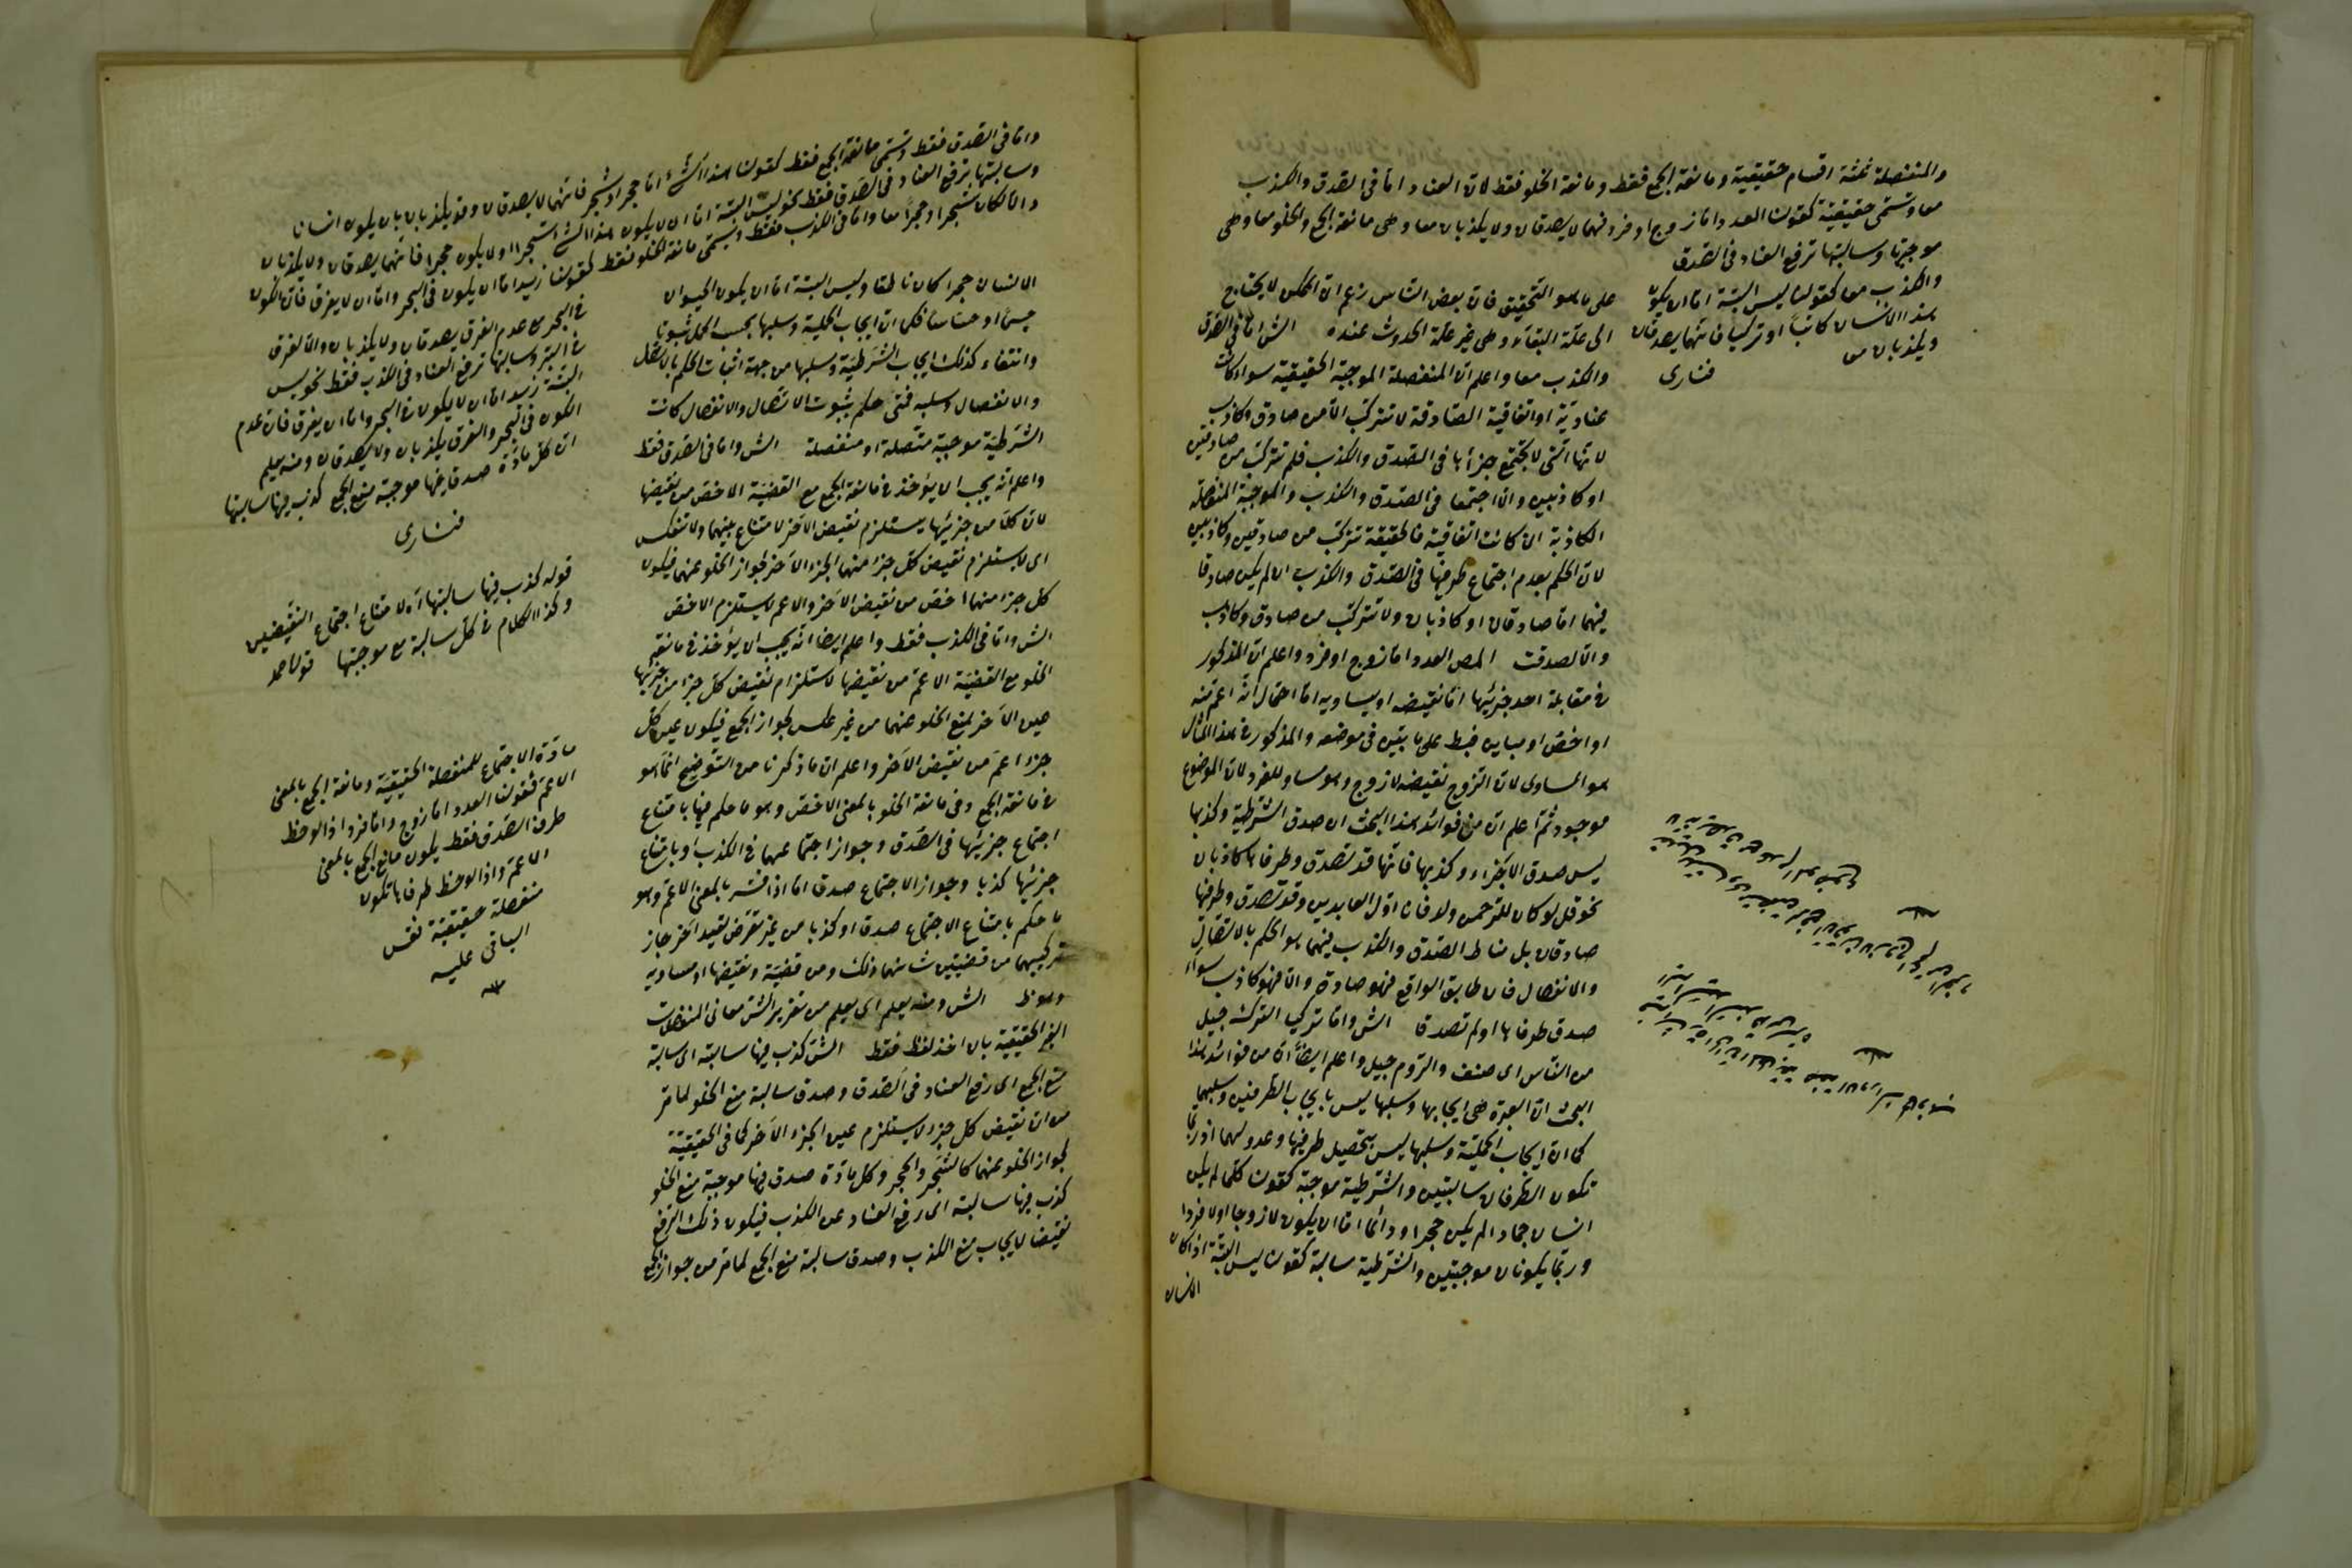 والمنفصلة ثلثة اقسام حقيقية ومانعة الجمع فقط ومانعة الخلو فقط لان العناد اما فى الصدق والكذب
معا وتسمى حقيقية كقولنا العدد اما زوج او فرد فهما لا يصدقان ولا يكذبان معا وهى مانعة الجمع والخلو معا وهى
موجبتها وسالبتها ترفع العناد فى الصدق
والكذب معا كقولنا ليس البتة اما ان يكون
هذا الانسان كاتبا او تركيا فانهما يصدقان
ويكذبان معا
فنارى
على ما هو التحقيق فان بعض الناس زعم ان الممكن لا يحتاج
الى علة البقاء وهى غير علة الحدوث عنده الش اما فى الصدق
والكذب معا واعلم ان المنفصلة الموجبة الحقيقية سواء كانت
عنادية او اتفاقية الصادقة لا تتركب الا من صادق وكاذب
لانها التى لا يجتمع جزأها فى الصدق والكذب فلم تتركب من صادقين
او كاذبين والا اجتمعا فى الصدق والكذب والموجبة المنفصلة
الكاذبة ان كانت اتفاقية فالحقيقة تتركب من صادقين وكاذبين
لان الحكم بعدم اجتماع طرفيها فى الصدق والكذب ان لم يكن صادقا
فيهما اما صادقان او كاذبان ولا تتركب من صادق وكاذب
والا لصدقت المص العدد اما زوج او فرد واعلم ان المذكور
فى مقابلة احد جزئيها اما نقيضه او يساويه اما احتمال انه اعم منه
او اخص او مباين فبط على ما بين فى موضعه والمذكور فى هذا المثال
هو المساوى لان الزوج نقيضه لا زوج وهو مساو للفرد لان الموضوع
موجود ثم اعلم ان من فوائد هذا البحث ان صدق الشرطية وكذبها
ليس صدق الاجزاء وكذبها فانها قد تصدق وطرفاها كاذبان
نحو قل لو كان للرحمن ولد فانا اول العابدين وقد تصدق وطرفها
صادقان بل مناط الصدق والكذب فيهما هو الحكم بالاتصال
والانفصال فان طابق الواقع فهو صادق والا فهو كاذب سواء
صدق طرفاها او لم تصدقا الش واما تركيا الترك جيل
من الناس اى صنف والروم جيل واعلم ايضا ان من فوائد هذا
البحث ان العبرة فى ايجابها وسلبها ليس بايجاب الطرفين وسلبهما
كما ان ايجاب الحملية وسلبها ليس بتحصيل طرفيها وعدولهما اذ ربما
تكون الطرفان سالبتين والشرطية موجبة كقولنا كلما لم يكن
انسان جماد لم يكن حجرا ودائما اما ان يكون لا زوجا او لا فردا
وربما يكونان موجبتين والشرطية سالبة كقولنا ليس البتة اذا كان
الانسان
واما فى الصدق فقط وتسمى مانعة الجمع فقط كقولنا هذا الشئ اما حجر او شجر فانهما لا يصدقان وقد يكذبان بان يكون انسانا
وسالبتها ترفع العناد فى الصدق فقط نحو ليس البتة اما ان لا يكون هذا الشئ شجرا او لا يكون حجرا فانهما يصدقان ولا يكذبان
والا لكان شجرا وحجرا معا واما فى الكذب فقط وتسمى مانعة الخلو فقط كقولنا زيد اما ان يكون فى البحر واما ان لا يغرق فان الكون
فى البحر مع عدم الغرق يصدقان ولا يكذبان والا لغرق
فى البر وسالبتها ترفع العناد فى الكذب فقط نحو ليس
البتة زيد اما ان لا يكون فى البحر واما ان يغرق فان عدم
الكون فى البحر والغرق يكذبان ولا يصدقان ومنه يعلم
ان كل مادة صدق فيها موجبة منع الجمع كذب فيها سالبتها
فنارى
قوله كذب فيها سالبتها اه لامتناع اجتماع النقيضين
وكذا الكلام فى كل سالبة مع موجبتها قول احمد
مادة الاجتماع للمنفصلة الحقيقية ومانعة الجمع بالمعنى
الاعم فقولنا العدد اما زوج واما فرد اذا لوحظ
طرف الصدق فقط يكون مانع الجمع بالمعنى
الاعم واذا لوحظ طرفاها تكون
منفصلة حقيقية نقس
الباقى عليه
منه
الانسان حجرا كان ناطقا وليس البتة اما ان يكون الحيوان
جسما او حساسا فكما ان ايجاب الحملية وسلبها بحسب الحمل ثبوتا
وانتفاء كذلك ايجاب الشرطية وسلبها من جهة اثبات الحكم بالاتصال
والانفصال وسلبه فمتى حكم بثبوت الاتصال والانفصال كانت
الشرطية موجبة متصلة او منفصلة الش واما فى الصدق فقط
واعلم انه يجب ان يؤخذ فى مانعة الجمع مع القضية الاخص من نقيضها
لان كلا من جزئيها يستلزم نقيض الاخر لامتناع بينهما ولا تنعكس
اى لا يستلزم نقيض كل جزء منها الجزء الاخر لجواز الخلو عنهما فيكون
كل جزء منهما اخص من نقيض الاخر والاعم لا يستلزم الاخص
الش واما فى الكذب فقط واعلم ايضا انه يجب ان يؤخذ فى مانعة
الخلو مع القضية الاعم من نقيضها لاستلزام نقيض كل جزء من جزئيها
عين الاخر لمنع الخلو عنهما من غير عكس لجواز الجمع فيكون عين كل
جزء اعم من نقيض الاخر واعلم ان ما ذكرنا من التوضيح انما هو
فى مانعة الجمع وفى مانعة الخلو بالمعنى الاخص وهو ما حكم فيها بامتناع
اجتماع جزئيها فى الصدق وجواز اجتماعهما فى الكذب او بامتناع
جزئيها كذبا وجواز الاجتماع صدقا اما اذا فسر بالمعنى الاعم وهو
ما حكم بامتناع الاجتماع صدقا او كذبا من غير تعرض لقيد اخر جاز
تركيبهما من قضيتين شانهما ذلك ومن قضية ونقيضها او مساويه
وهو ظ الش ومنه يعلم اى يعلم من تقرير الش معانى المنفصلات
الغير الحقيقية بان اخذ لفظ فقط الش كذب فيها سالبته اى سالبة
منع الجمع اى رفع العناد فى الصدق وصدق سالبة منع الخلو لما مر
من ان نقيض كل جزء لا يستلزم عين الجزء الاخر كما فى الحقيقية
لجواز الخلو عنهما كالشجر والحجر وكل مادة صدق فيها موجبة منع الخلو
كذب فيها سالبته اى رفع العناد عن الكذب فيكون ذلك الرفع
نقيضا لايجاب منع الكذب وصدق سالبة منع الجمع لما مر من جواز الجمع